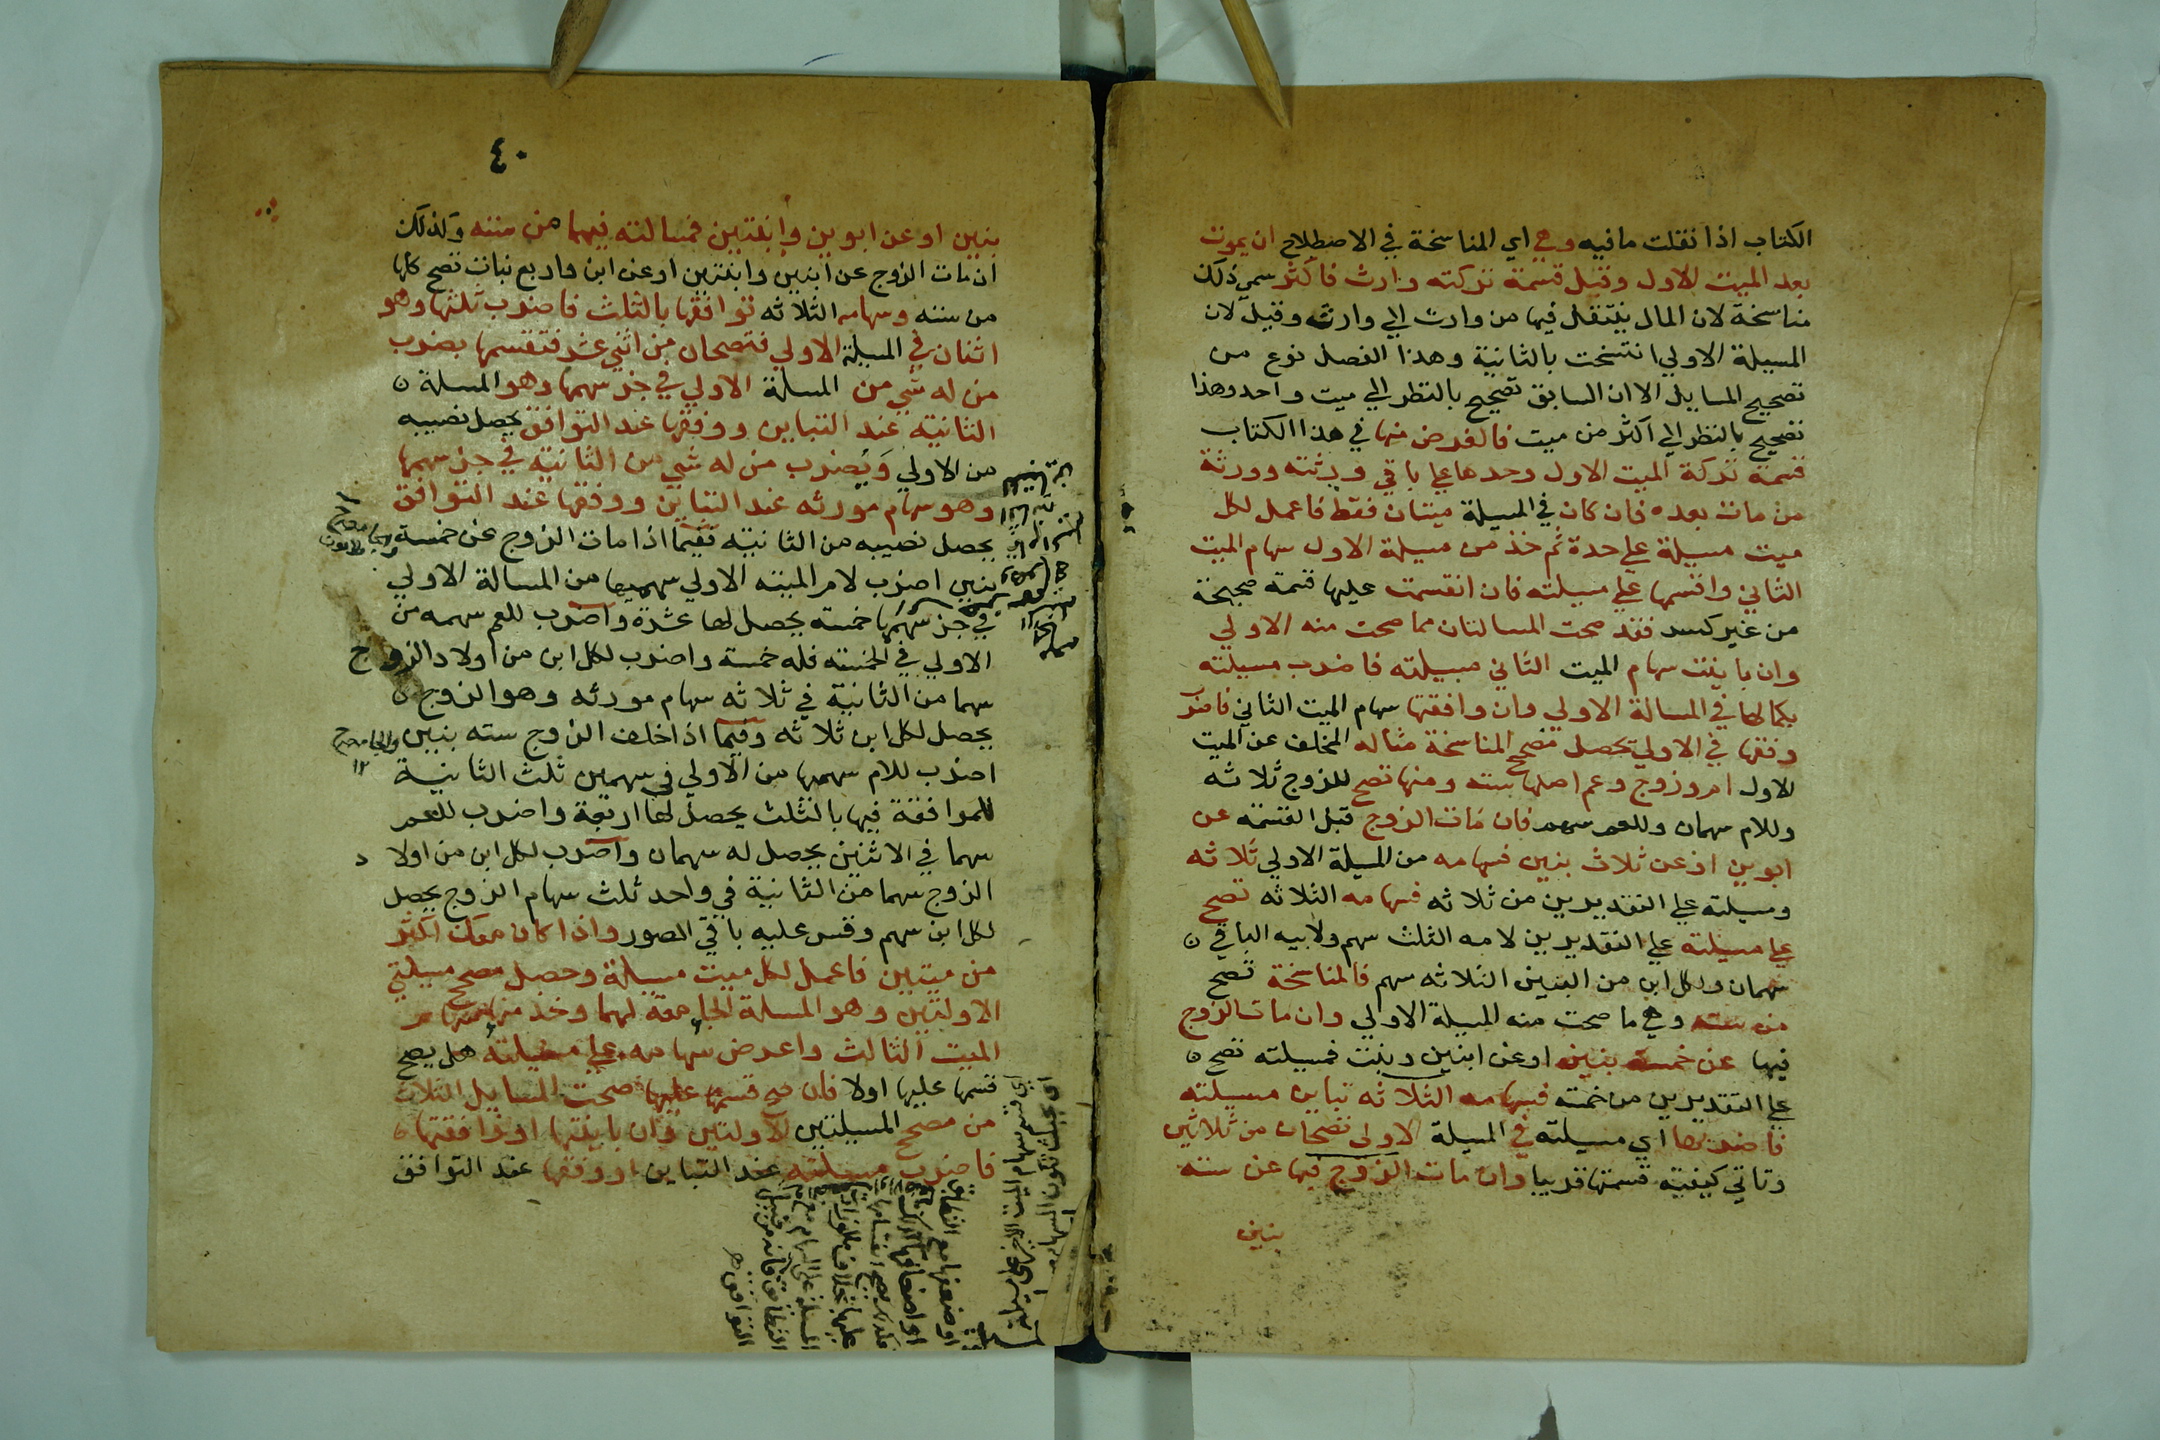 الكتاب اذا نقلت مافيه وهي اي المناسخة في الاصطلاح ان يموت
بعد الميت الاول وقبل قسمة تركته وارث فاكثر سمي ذلك
مناسخة لان المال ينتقل فيها من وارث الي وارث وقيل لان
المسيلة الاولي انتسخت بالثانية وهذا الفصل نوع من
تصحيح المسايل الا ان السابق تصحيح بالنظر الي ميت واحد وهذا
تصحيح بالنظر الي اكثر من ميت فالغرض منها في هذا الكتاب
قسمة تركة الميت الاول وحدها علي باقي ورثته وورثة
من مات بعده فان كان في المسيلة ميتان فقط فاعمل لكل
ميت مسيلة علي حدة ثم خذ من مسيلة الاول سهام الميت
الثاني واقسمها علي مسيلته فان انقسمت عليها قسمة صحيحة
من غير كسر فقد صحت المسالتان مما صحت منه الاولي
وان باينت سهام الميت الثاني مسيلته فاضرب مسيلته
بكمالها في المسالة الاولي وان وافقتها سهام الميت الثاني فاضرب
وفقها في الاولي يحصل مصحح المناسخة مثاله المخلف عن الميت
الاول ام وزوج وعم اصلها سته ومنها تصح للزوج ثلاثه
وللام سهمان وللعم سهم فان مات الزوج قبل القسمه عن
ابوين او عن ثلاث بنين فسهامه من المسيلة الاولي ثلاثه
ومسيلته علي التقديرين من ثلاثه فسهامه الثلاثه تصح
علي مسيلته علي التقديرين لامه الثلث سهم ولابيه الباقي ن
سهمان ولكل ابن من البنين الثلاثه سهم فالمناسخة تصح
من سته وهي ما صحت منه المسيلة الاولي وان مات الزوج
فيها عن خمسة بنين او عن ابنين وبنت فمسيلته تصح ن
علي التقديرين من خمسه فسهامه الثلاثه تباين مسيلته
فاضربها اي مسيلته في المسيلة الاولي تصحان من ثلاثين
وتاتي كيفية قسمتها قريبا وان مات الزوج فيها عن سته
بنين
٤٠
بنين او عن ابوين وابنتين فمسالته فيهما من سته وكذلك
ان مات الزوج عن ابنين وابنتين او عن ابن واربع بنات تصح كلها
من سته وسهامه الثلاثه توافقها بالثلث فاضرب ثلثها وهو
اثنان في المسيلة الاولي فتصحان من اثني عشر فتقسمها بضرب
من له شي من المسلة الاولي في جز سهمها وهو المسلة ن
الثانية عند التباين ووفقها عند التوافق يحصل نصيبه
من الاولي ويضرب من له شي من الثانية في جز سهمها
وهو سهام مورثه عند التباين ووفقها عند التوافق
يحصل نصيبه من الثانيه ففيما اذا مات الزوج عن خمسة
بنين اضرب لام الميته الاولي سهميها من المسالة الاولي
في جز سهمها خمسه يحصل لها عشرة واضرب للعم سهمه من
الاولي في الخمسه فله خمسة واضرب لكل ابن من اولاد الزوج
سهما من الثانية في ثلاثه سهام مورثه وهو الزوج ن
يحصل لكل ابن ثلاثه وفيما اذا خلف الزوج سته بنين
اضرب للام سهمها من الاولي في سهمين ثلث الثانية
للموافقة فيها بالثلث يحصل لها اربعة واضرب للعم
سهما في الاثنين يحصل له سهمان واضرب لكل ابن من اولا د
الزوج سهما من الثانية في واحد ثلث سهام الزوج يحصل
لكل ابن سهم وقس عليه باقي الصور واذا كان معك اكثر
من ميتين فاعمل لكل ميت مسيلة وحصل مصحح مسيلتي
الاولتين وهو المسلة الجامعة لهما وخذ منها سهام
الميت الثالث واعرض سهامه علي مسيلته هل يصح
قسمها عليها اولا فان صح قسمها عليها صحت المسايل الثلاث
من مصحح المسيلتين الاولتين وان باينتها او وافقتها ن
فاضرب مسيلته عند التباين او وفقها عند التوافق